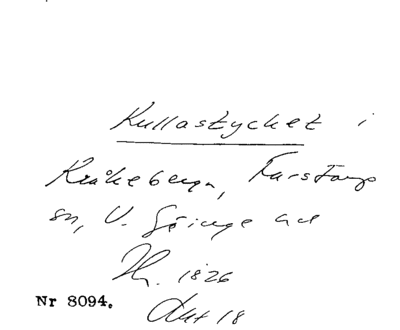 Kullastycket i
Kråkeberga, Farstorps
sn, V. Göinge hd
Hr. 1826
Nr 8094.
Akt 18